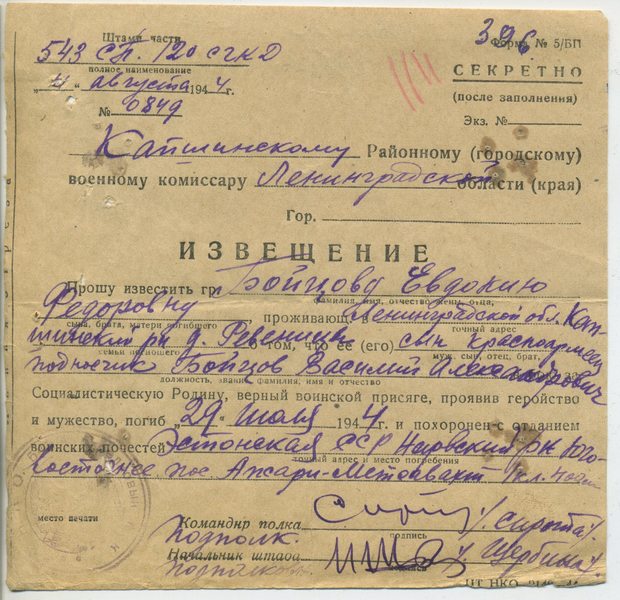 Штамп части
396 Форма № 5/БП
543 СП. 120 СГКД
полное наименование
СЕКРЕТНО
"4" августа 1944 г.
(после заполнения)
№ 0849
Экз. №
Капшинскому Районному (городскому)
военному комиссару Ленинградской области (края)
Гор.
ИЗВЕЩЕНИЕ
Прошу известить гр. Бойцову Евдокию
фамилия, имя, отчество жену, отца,
Федоровну проживающ. в Ленинградской обл. Кап-
сына, брата, матери погибшего точный адрес
шинский рн д. о том, что ее (его) сын красноармеец
семьи погибшего муж, сын, отец, брат,
подносчик Бойцов Василий Александрович
должность, звание, фамилия, имя и отчество за
Социалистическую Родину, верный воинской присяге, проявив геройство
и мужество, погиб "29" июля 1944 и похоронен с отданием
воинских почестей Эстонская ССР Нарвский р/он Юго-
точный адрес и место погребения
восточнее пос.
место печати
Командир полка Сирота
подполк. подпись
Начальник штаба Щербина
подполков.